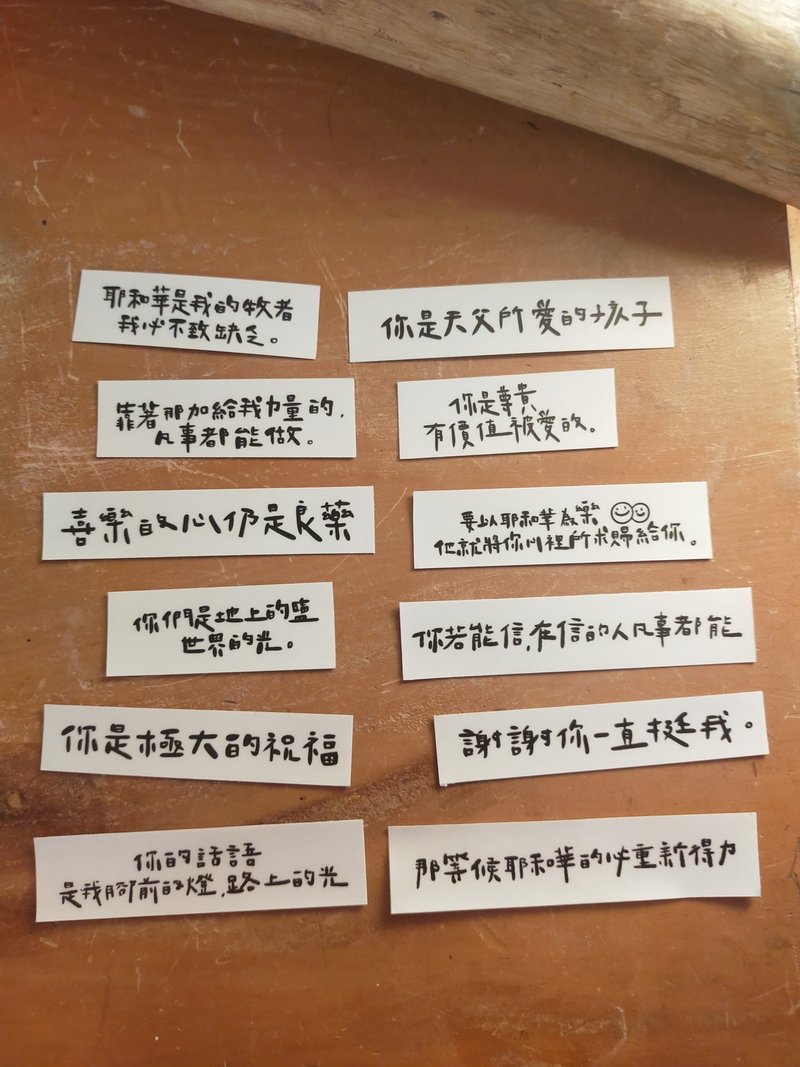 耶和華是我的牧者
我必不致缺乏。
你是天父所愛的孩子
靠著那加給我力量的，
凡事都能做。
你是尊貴
有價值被愛的。
喜樂的心仍是良藥
要以耶和華為樂
他就將你心裡所求賜給你。
你們是地上的鹽
世界的光。
你若能信，在信的人凡事都能
你是極大的祝福
謝謝你一直挺我。
你的話語
是我腳前的燈，路上的光
那等候耶和華的必重新得力